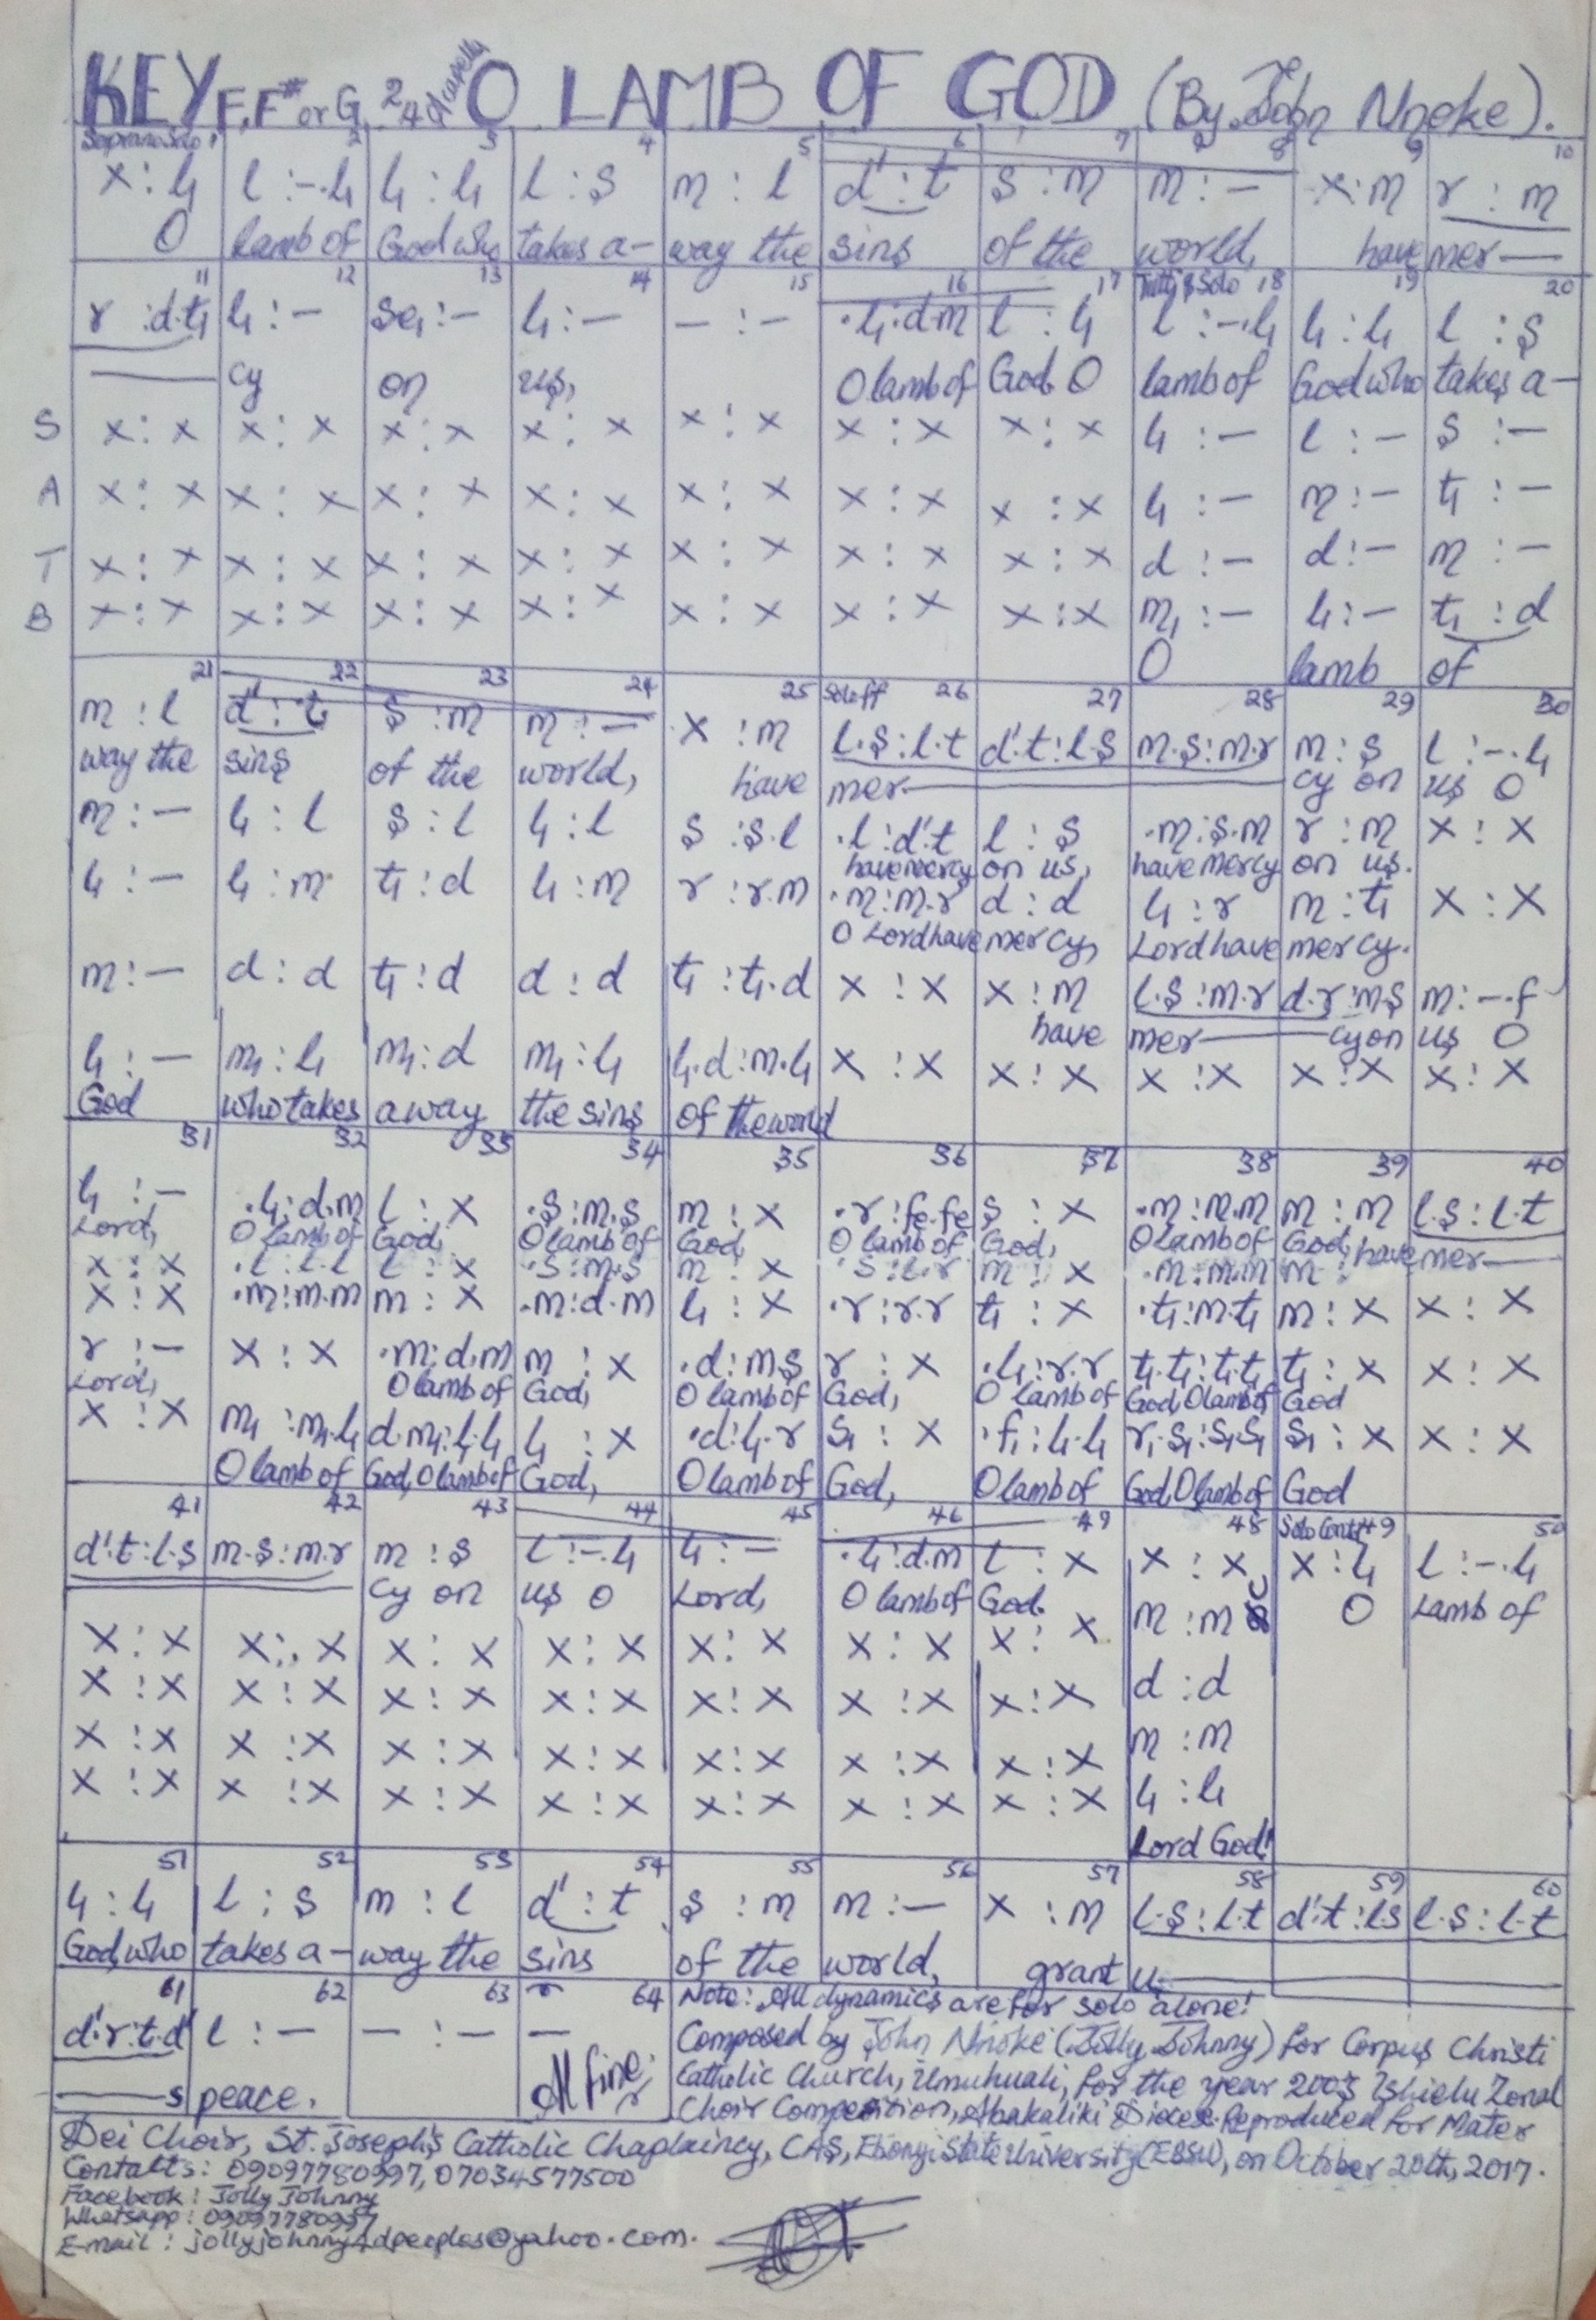 KEY F, F# or G 2/4 acapella O LAMB OF GOD (By John Nnoke).
Soprano Solo 1 2 3 4 5 6 7 8 9 10
x : l₁ | l : -. l₁ | l₁ : l₁ | l : s | m : l | d' : t | s : m | m : — | x : m | r : m
O lamb of God who takes a- way the sins of the world, have mer—
11 12 13 14 15 16 17 Tutti & Solo 18 19 20
r : d.t₁ | l₁ : — | se₁ : — | l₁ : — | — : — | .l₁ : d.m | l : l₁ | l : -. l₁ | l₁ : l₁ | l : s
— cy on us, O lamb of God. O lamb of God who takes a-
S x : x | x : x | x : x | x : x | x : x | x : x | x : x | l₁ : — | l : — | s : —
A x : x | x : x | x : x | x : x | x : x | x : x | x : x | l₁ : — | m : — | t₁ : —
T x : x | x : x | x : x | x : x | x : x | x : x | x : x | d : — | d : — | m : —
B x : x | x : x | x : x | x : x | x : x | x : x | x : x | m₁ : — | l₁ : — | t₁ : d
O lamb of
21 22 23 24 25 Solo ff 26 27 28 29 30
m : l | d' : t | s : m | m : — | x : m | l.s : l.t | d'.t : l.s | m.s : m.r | m : s | l : -. l₁
way the sins of the world, have mer— cy on us O
m : — | l₁ : l | s : l | l₁ : l | s : s.l | .l : d'.t | l : s | .m : s.m | r : m | x : x
have mercy on us, have mercy on us.
l₁ : — | l₁ : m | t₁ : d | l₁ : m | r : r.m | .m : m.r | d : d | l₁ : r | m : t₁ | x : x
O Lord have mercy, Lord have mercy.
m : — | d : d | t₁ : d | d : d | t₁ : t₁.d | x : x | x : m | l.s : m.r | d.r : m.s | m : -. f
have mer— cy on us O
l₁ : — | m₁ : l₁ | m₁ : d | m₁ : l₁ | l₁.d : m.l₁ | x : x | x : x | x : x | x : x | x : x
God who takes away the sins of the world
31 32 33 34 35 36 37 38 39 40
l₁ : — | .l₁ : d.m | l : x | .s : m.s | m : x | .r : fe.fe | s : x | .m : m.m | m : m | l.s : l.t
Lord, O lamb of God, O lamb of God, O lamb of God, O lamb of God, have mer—
x : x | .l : l.l | l : x | .s : m.s | m : x | .s : l.r | m : x | .m : m.m | m :
x : x | .m : m.m | m : x | .m : d.m | l₁ : x | .r : r.r | t₁ : x | .t₁ : m.t₁ | m : x | x : x
r : — | x : x | .m : d.m | m : x | .d : m.s | r : x | .l₁ : r.r | t₁.t₁ : t₁.t₁ | t₁ : x | x : x
Lord, O lamb of God, O lamb of God, O lamb of God, O lamb of God
x : x | m₁ : m₁.l₁ | d.m₁ : l₁.l₁ | l₁ : x | .d : l₁.r | s₁ : x | .f₁ : l₁.l₁ | r₁.s₁ : s₁.s₁ | s₁ : x | x : x
O lamb of God, O lamb of God, O lamb of God, O lamb of God, O lamb of God
41 42 43 44 45 46 47 48 Solo Contd 49 50
d'.t : l.s | m.s : m.r | m : s | l : -. l₁ | l₁ : — | .l₁ : d.m | l : x | x : x | x : l₁ | l : -. l₁
cy on us O Lord, O lamb of God. O Lamb of
x : x | x : x | x : x | x : x | x : x | x : x | x : x | m : m
x : x | x : x | x : x | x : x | x : x | x : x | x : x | d : d
x : x | x : x | x : x | x : x | x : x | x : x | x : x | m : m
x : x | x : x | x : x | x : x | x : x | x : x | x : x | l₁ : l₁
Lord God!
51 52 53 54 55 56 57 58 59 60
l₁ : l₁ | l : s | m : l | d' : t | s : m | m : — | x : m | l.s : l.t | d'.t : l.s | l.s : l.t
God, who takes a- way the sins of the world, grant u—
61 62 63 64
d'.r : t.d' | l : — | — : — | —
—s peace. All fine
Note: All dynamics are for solo alone!
Composed by John Nnoke (Jolly Johnny) for Corpus Christi
Catholic Church, Umuhuali, for the year 2003 Ishielu Zonal
Choir Competition, Abakaliki Diocese. Reproduced for Mater
Dei Choir, St. Joseph's Catholic Chaplaincy, CAS, Ebonyi State University (EBSU), on October 20th, 2017.
Contacts: 09097780997, 07034577500
Facebook: Jolly Johnny
Whatsapp: 09097780997
E-mail: jollyjohnny4dpeoples@yahoo.com.